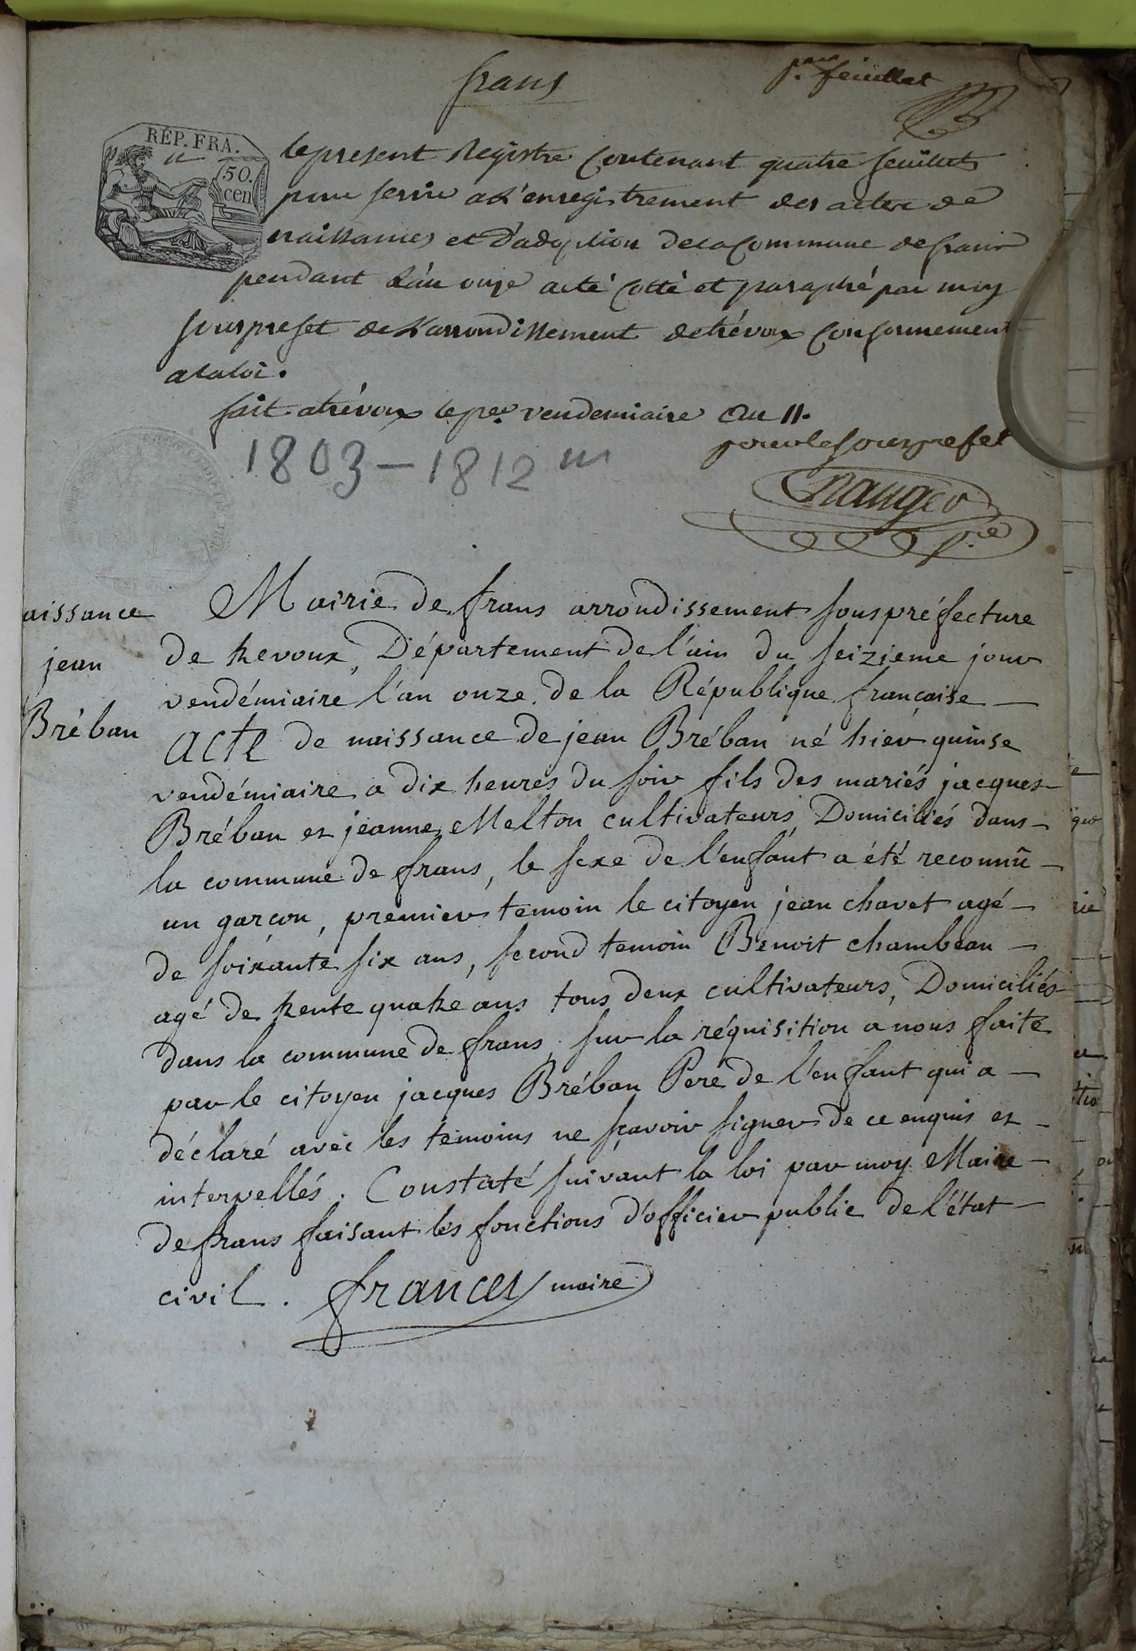 frans
pr. feuillet
RÉP. FRA.
50.
cen
le present Registre Contenant quatre feuillets
pour servir a L'enregistrement des actes de
naissances et D'adoption de la Commune de frans
pendant L'an onze acté Cotté et paraphé par moy
souspreset de L'arrondissement de trévoux Conformement
a la loi.
fait a trévoux le per. vendemiaire an 11.
pour le souspreset
1803 - 1812
aissance
jean
Bréban
Mairie de frans arrondissement souspréfecture
de trevoux, Département de l'ain du seizieme jour
vendémiaire l'an onze de la République française
Acte de naissance de jean Bréban né hier quinse
vendémiaire a dix heures du soir fils des mariés jacques
Bréban et jeanne Melton cultivateurs Domiciliés dans
la commune de frans, le sexe de l'enfant a été reconnû
un garcon, premier temoin le citoyen jean chavet agé
de soixante six ans, second temoin Benoit chambeau
agé de trente quatre ans tous deux cultivateurs, Domiciliés
dans la commune de frans, sur la réquisition a nous faite
par le citoyen jacques Bréban Pere de l'enfant qui a
déclaré avec les temoins ne scavoir signer de ce enquis et
interpellés. Constaté suivant la loi par moy Maire
de frans faisant les fonctions d'officier public de l'état
civil. frances maire